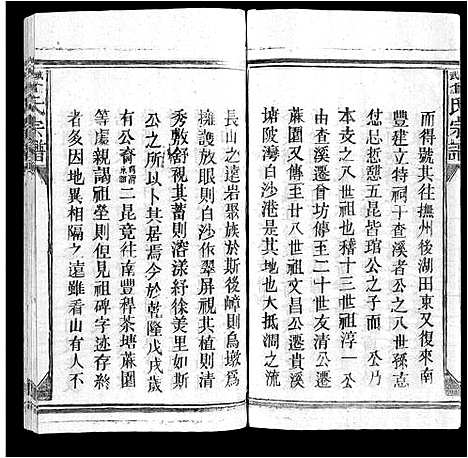 而得號其往撫州後湖田東又復來南
豐建立特祠于査溪者公之八世孫志
忿志愸五昆皆琯公之子也　公乃
忽而一世祖也稽十三世祖淳一公
由査溪遷會坊傳至二十世友清公遷
蔴園又傳至廿八世祖文昌公遷貴溪
堵陂灣白沙港是其地也大抵澗之流
長山之遠岩聚族於斯後嶂則烏墩為
擁護放眼則白沙依翠屏視其植則清
秀敷舒視其蓄則溶漾紆徐美里如斯
公之所以卜其居焉今於乾隆戊戌歲
有公裔二昆竟往南豐稈茶塘蔴園
等處親謁祖塋則但見祖碑字迹存期
者多因地異相隔之遠難看山有人不
氏宗譜
氏宗譜